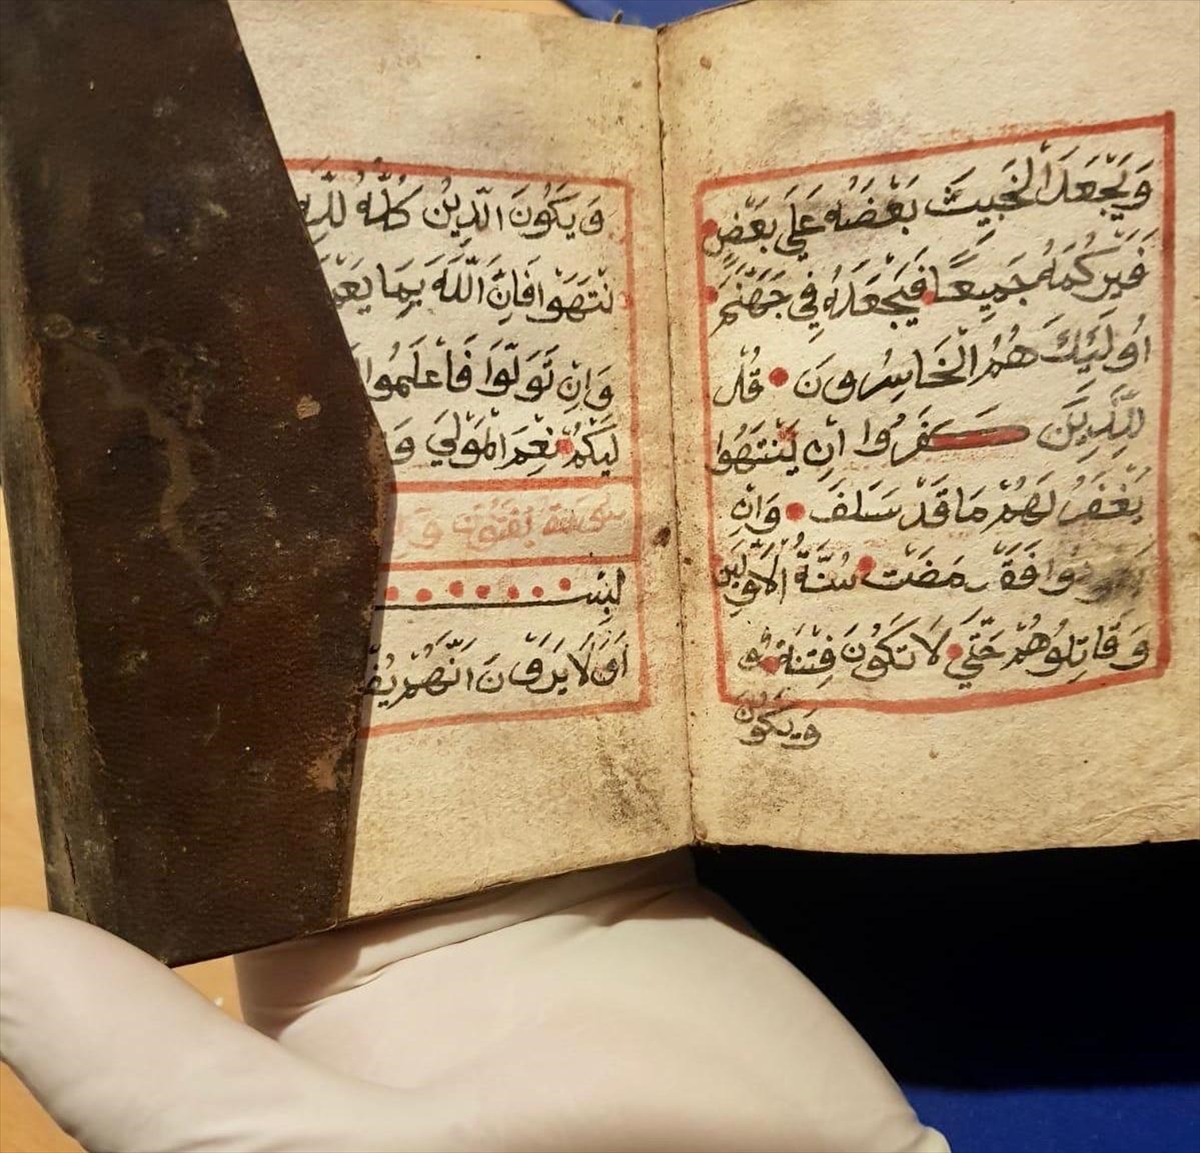 وَيَجْعَلَ الْخَبِيثَ بَعْضَهُ عَلَي بَعْضٍ
فَيَرْكُمَهُ جَمِيعًا فَيَجْعَلَهُ فِي جَهَنَّمَ
أُولَئِكَ هُمُ الْخَاسِرُونَ قُل
لِلَّذِينَ كَفَرُوا اِنْ يَنْتَهُوا
يُغْفَرْ لَهُمْ مَا قَدْ سَلَفَ وَاِنْ
فَقَدْ مَضَتْ سُنَّةُ الْاَوَّلِينَ
وَقَاتِلُوهُمْ حَتَّي لَا تَكُونَ فِتْنَةٌ و
وَيَكُونَ
وَيَكُونَ الدِّينُ كُلُّهُ لِلَّهِ
نْتَهَوْا فَاِنَّ اللَّهَ بِمَا يَعْمَ
وَاِنْ تَوَلَّوْا فَاعْلَمُوا
لَيكُمْ نِعْمَ الْمَوْلَي وَ
بِسْ
اَوَلَا يَرَوْنَ اَنَّهُمْ يُفْ